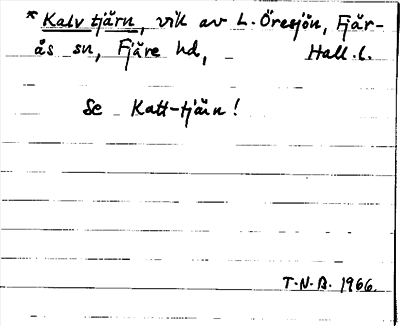 * Kalvtjärn, vik av L. Öresjön, Fjär-
ås sn, Fjäre hd, Hall. l.
Se Katt-tjärn!
T.N.B. 1966.